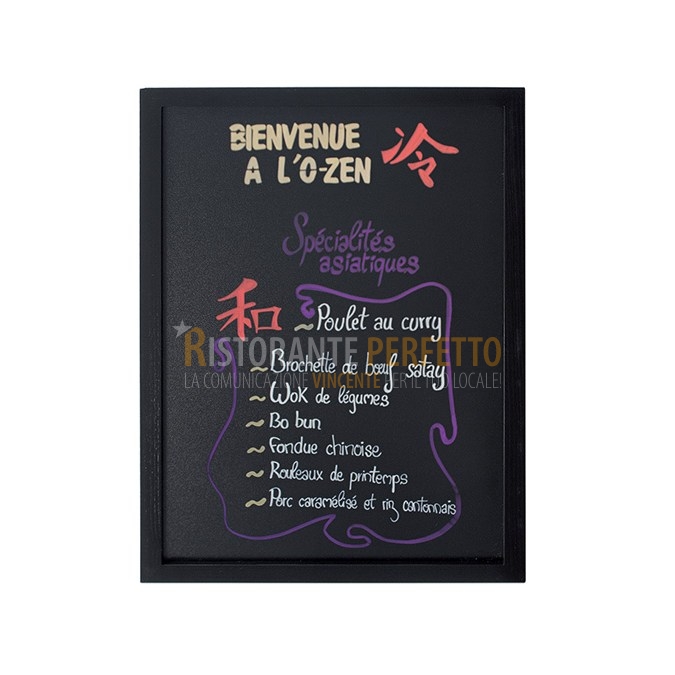 BIENVENUE
A L'O-ZEN
冷
Spécialités
asiatiques
和
~Poulet au curry
RISTORANTE PERFETTO
~Brochette de bœuf satay
LA COMUNICAZIONE VINCENTE PER IL TUO LOCALE!
~Wok de légumes
~Bo bun
~Fondue chinoise
~Rouleaux de printemps
~Porc caramélisé et riz cantonnais